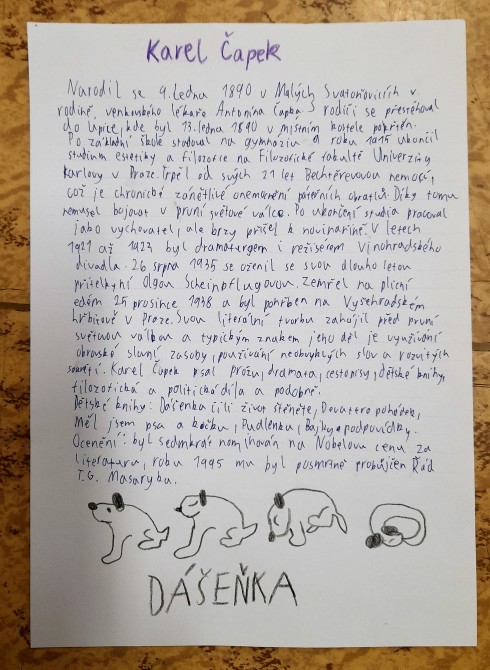 Karel Čapek
Narodil se 9. ledna 1890 v Malých Svatoňovicích v
rodině venkovského lékaře Antonína Čapka. S rodiči se přestěhoval
do Úpice, kde byl 13. ledna 1890 v místním kostele pokřtěn.
Po základní škole studoval na gymnáziu a roku 1915 ukončil
studium estetiky a filozofie na Filozofické fakultě Univerzity
Karlovy v Praze. Trpěl od svých 21 let Bechtěrevovou nemocí,
což je chronické zánětlivé onemocnění páteřních obratlů. Díky tomu
nemusel bojovat v první světové válce. Po ukončení studia pracoval
jako vychovatel, ale brzy přišel k novinařině. V letech
1921 až 1923 byl dramaturgem i režisérem Vinohradského
divadla. 26 srpna 1935 se oženil se svou dlouholetou
přítelkyní Olgou Scheinpflugovou. Zemřel na plicní
edém 25 prosince 1938 a byl pohřben na Vyšehradském
hřbitově v Praze. Svou literální tvorbu zahájil před první
světovou válkou a typickým znakem jeho děl je využívání
obrovské slovní zásoby, používání neobvyklých slov a rozvitých
souvětí. Karel Čapek psal prózu, dramata, cestopisy, dětské knihy,
filozofická a politická díla a podobně.
Dětské knihy: Dášenka čili život štěněte, Devatero pohádek,
Měl jsem psa a kočku, Pudlenka, Bajky a podpovídky.
Ocenění: byl sedmkrát nominován na Nobelovu cenu za
literaturu, roku 1995 mu byl posmrtně propůjčen Řád
T.G. Masaryka.
DÁŠEŇKA